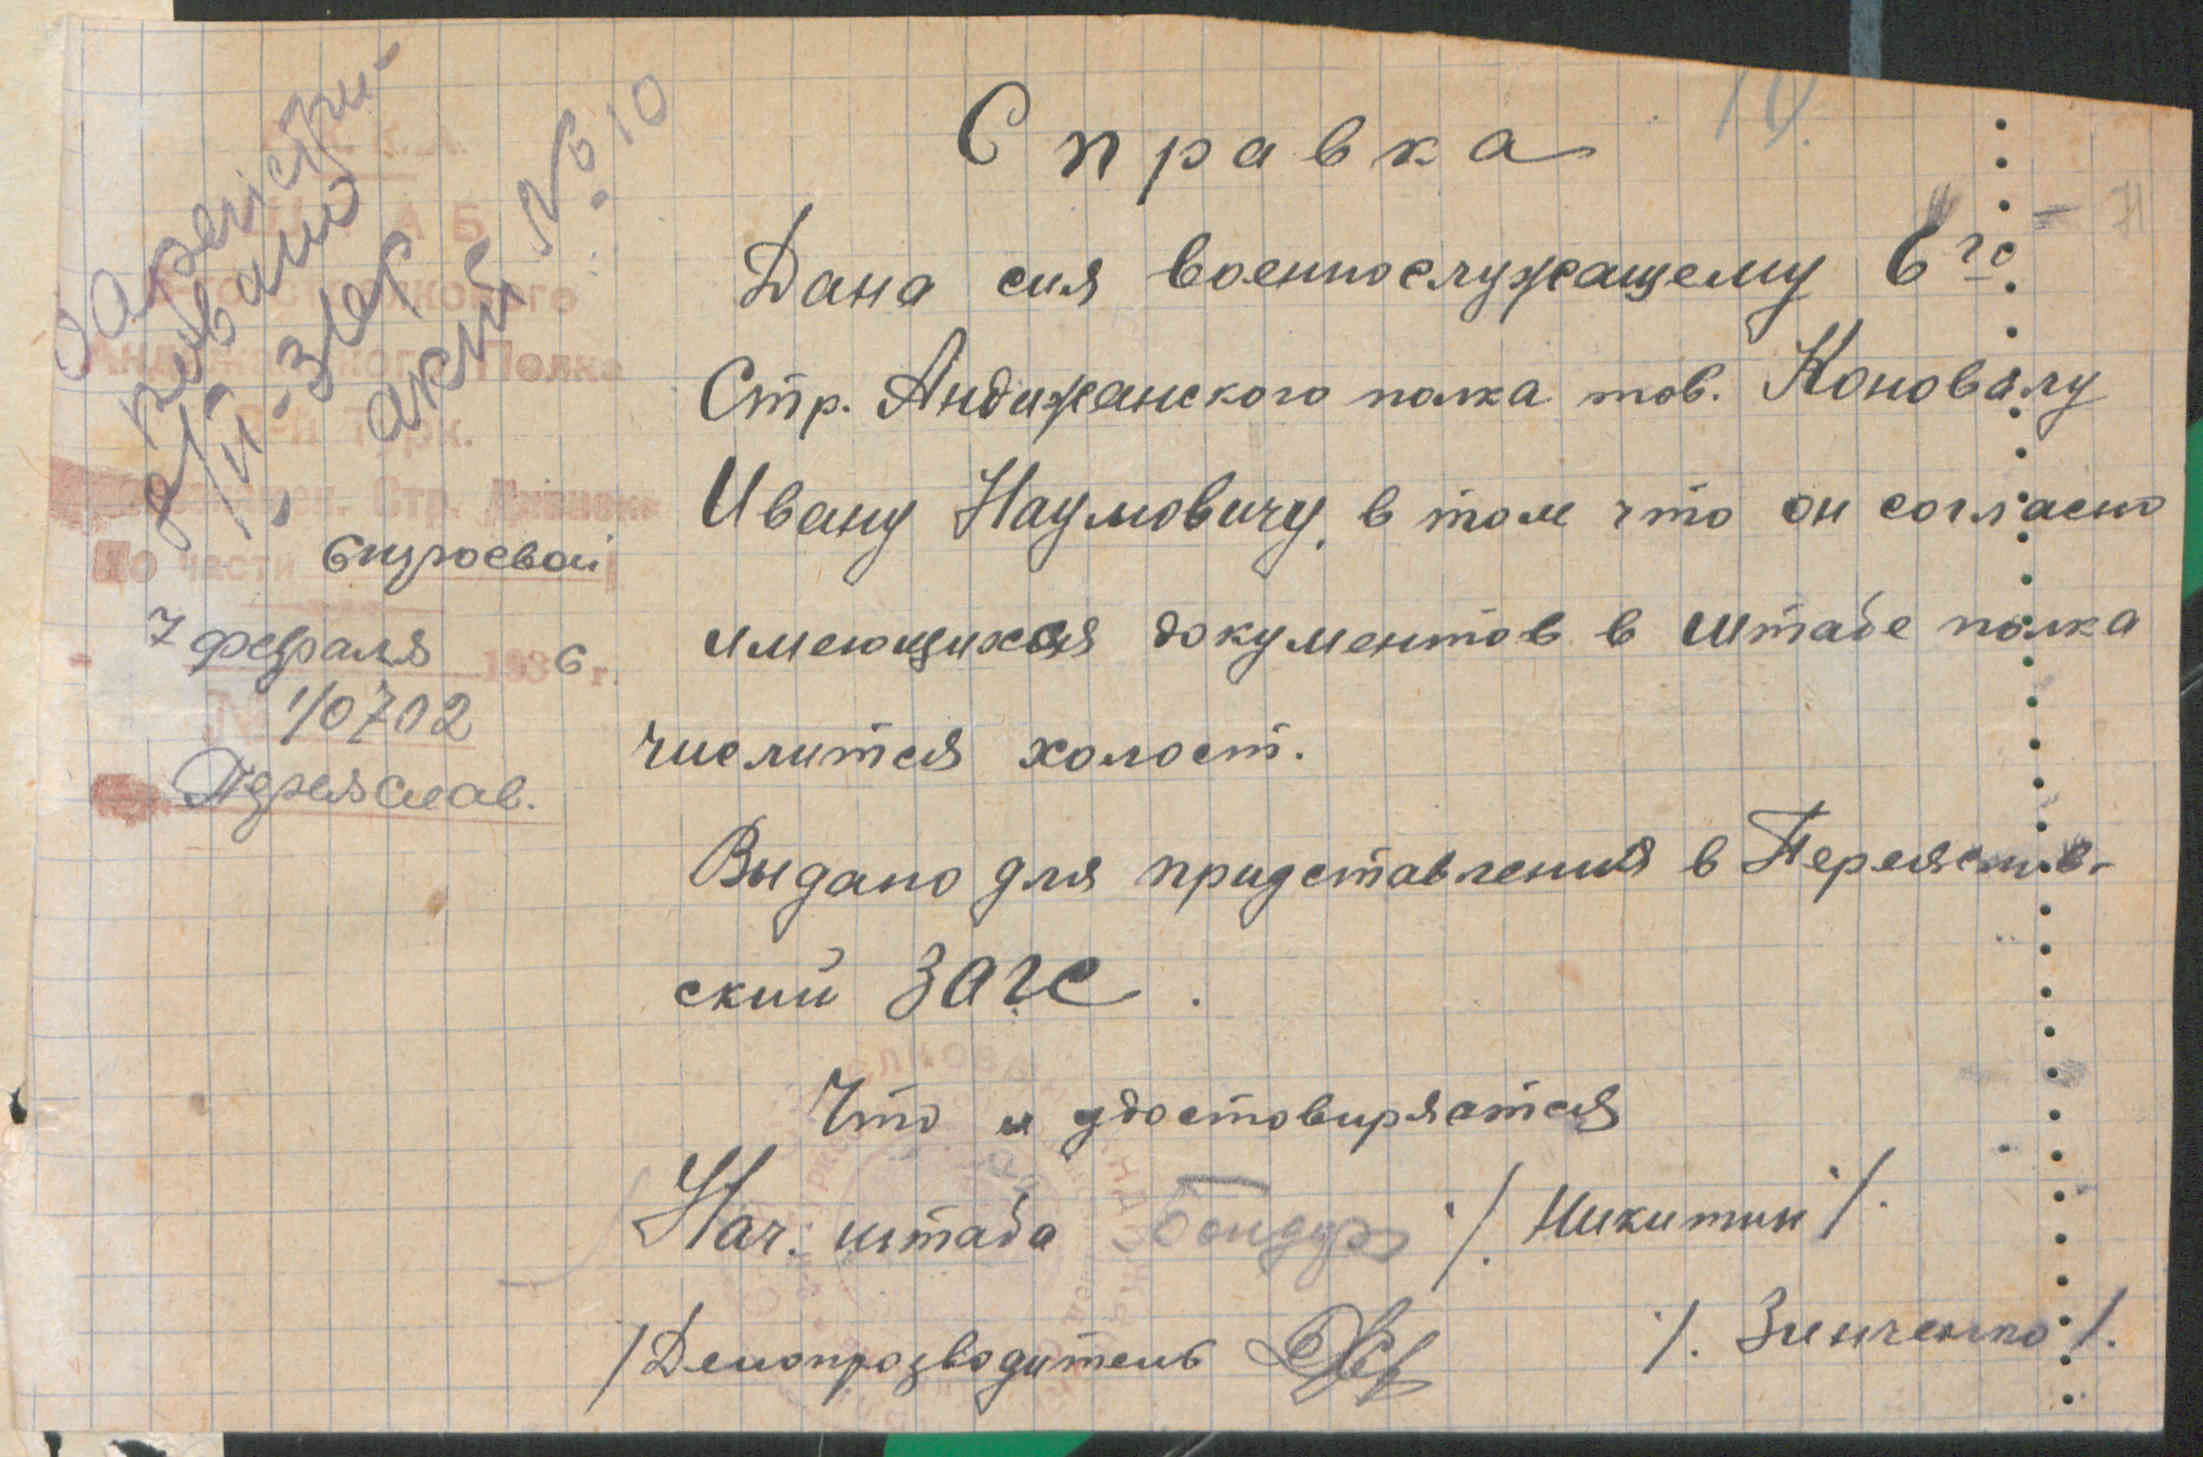 10.
Справка
Дана сия военнослужащему 6го
Стр. Андижанского полка тов. Коновалу
Ивану Наумовичу, в том что он согласно
имеющихся документов в штабе полка
числится холост.
Выдано для придставления в Переяслав-
ский Загс.
Что и удостовиряется
Нач. штаба /. Никитин /.
/Делопрозводитель /. Зинченко /.
Зареєстри-
ровано
9/II-36р
акт № 10
К.А.
ШТАБ
6 Стрелкового
Андижанского Полка
Стр. Дивизии
По части строевой
7 февраля 1936 г.
№ 1/0702
Переяслав.